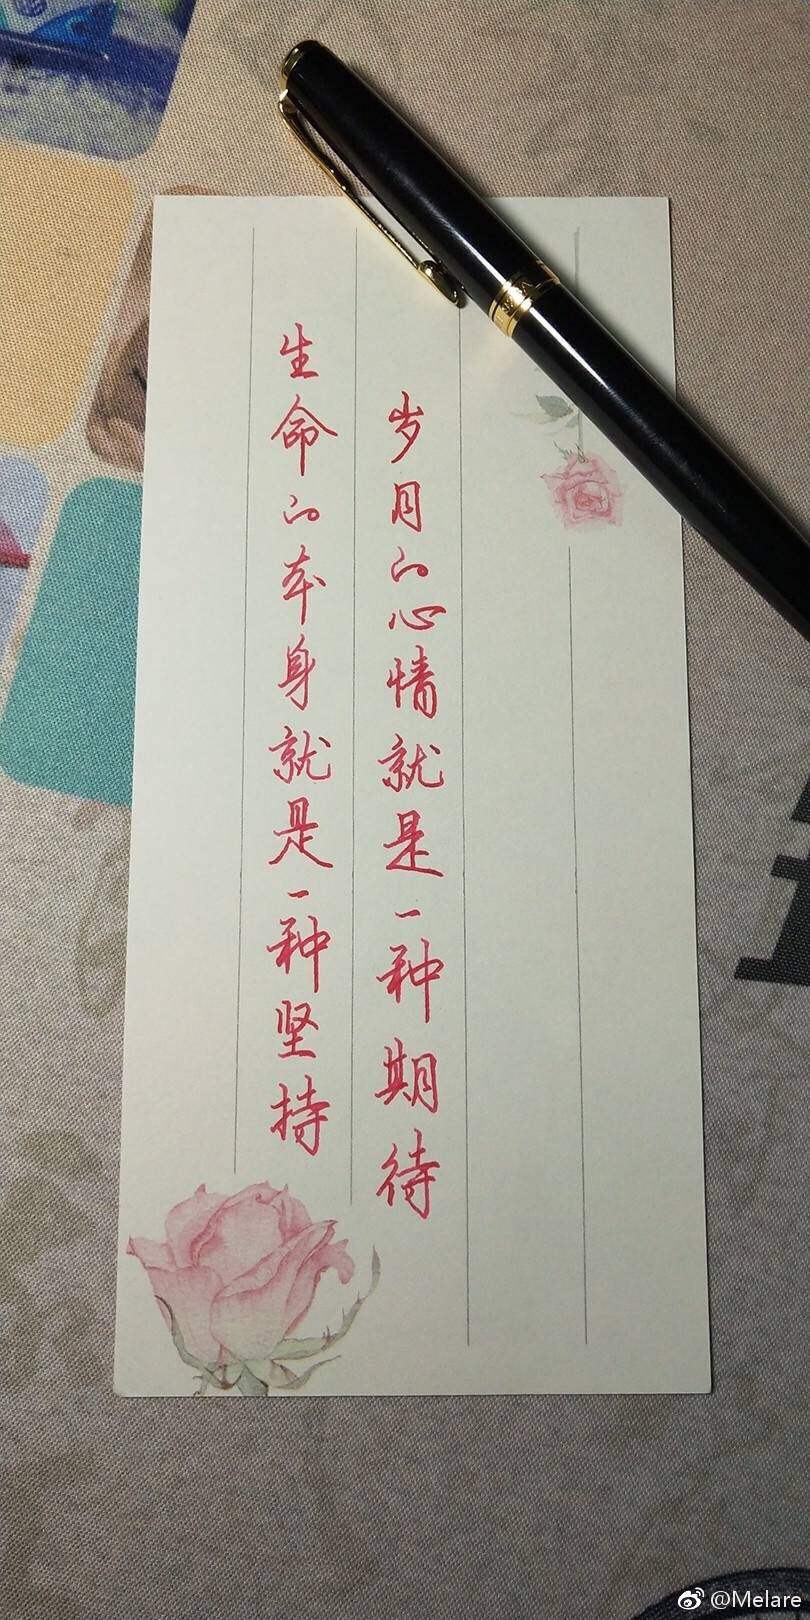 生命的本身就是一种坚持
岁月的心情就是一种期待
@Melare